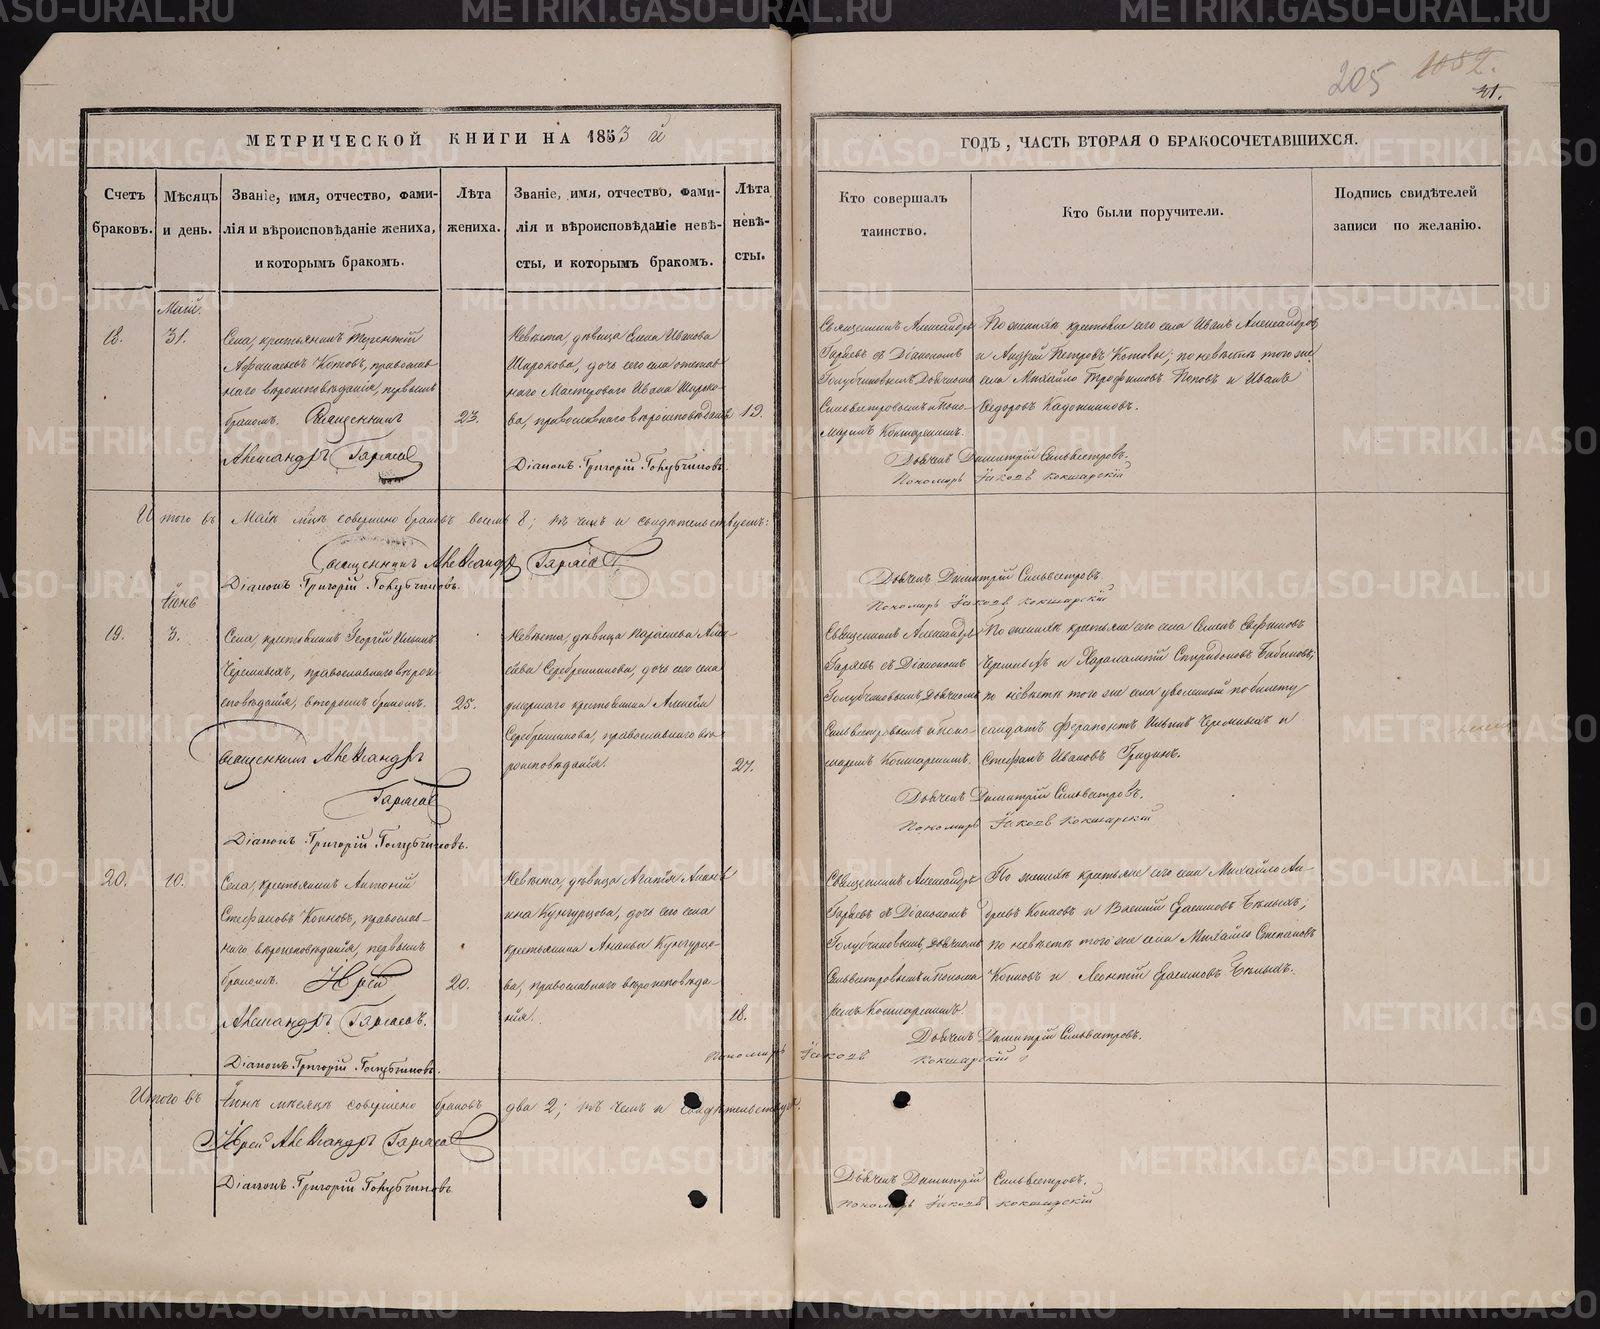 205 1052.
МЕТРИЧЕСКОЙ КНИГИ НА 1853 й
ГОДЪ, ЧАСТЬ ВТОРАЯ О БРАКОСОЧЕТАВШИХСЯ.
Счетъ браковъ.
Мѣсяцъ и день.
Званіе, имя, отчество, фами-
лія и вѣроисповѣданіе жениха,
и которымъ бракомъ.
Лѣта
жениха.
Званіе, имя, отчество, фами-
лія и вѣроисповѣданіе невѣ-
сты, и которымъ бракомъ.
Лѣта
невѣ-
сты.
Кто совершалъ
таинство.
Кто были поручители.
Подпись свидѣтелей
записи по желанію.
Маій.
18.
31.
Села, крестьянинъ
Афанасьевъ Котовъ, православ
наго вѣроисповѣданія, первымъ
бракомъ. Священникъ
Александръ Гаряевъ
23.
Невѣста, дѣвица Елена Иванова
Широкова, дочь сего села отстав
наго Мастероваго Ивана Широко-
ва, православнаго вѣроисповѣданія
19.
Діаконъ Григорій Голубчиковъ.
Священникъ Александръ
Гаряевъ съ Діакономъ
Голубчиковымъ, Дьячкомъ
Сильвестровымъ и Поно-
маремъ Кокшарскимъ.
По женихѣ крестьяне сего села Иванъ Александровъ
и Андрей Петровъ Котовы; по невѣстѣ того же
села Михайло Трофимовъ Поповъ и Иванъ
Ѳедоровъ Кадошниковъ.
Дьячекъ Димитрій Сильвестровъ.
Пономарь Іаковъ Кокшарскій
Итого въ Маіѣ мѣсяцѣ совершено браковъ восемь 8; въ чемъ и свидѣтельствуемъ:
Священникъ Александръ Гаряевъ
Діаконъ Григорій Голубчиковъ.
Дьячекъ Димитрій Сильвестровъ.
Пономарь Іаковъ Кокшарскій
Іюнь
19.
3.
Села, крестьянинъ Георгій Ильинъ
Черемныхъ, православнаго вѣрои-
сповѣданія, вторымъ бракомъ.
25.
Священникъ Александръ
Гаряевъ
Діаконъ Григорій Голубчиковъ.
Невѣста, дѣвица Алек-
сѣева Серебренникова, дочь сего села
умершаго крестьянина Алексѣя
Серебренникова, православнаго вѣ-
роисповѣданія.
27.
Священникъ Александръ
Гаряевъ съ Діакономъ
Голубчиковымъ, Дьячкомъ
Сильвестровымъ и Поно-
маремъ Кокшарскимъ.
По женихѣ крестьяне сего села Семенъ
Черемныхъ и Харалампій Спиридоновъ Бабиновъ;
по невѣстѣ того же села уволенный по билету
солдатъ Ферапонтъ Ильинъ Черемныхъ и
Стефанъ Ивановъ Гридинъ.
Дьячекъ Димитрій Сильвестровъ.
Пономарь Іаковъ Кокшарскій
20.
10.
Села, крестьянинъ Антоній
Стефановъ Коиновъ, православ-
наго вѣроисповѣданія, первымъ
бракомъ. Іерей
Александръ Гаряевъ.
20.
Діаконъ Григорій Голубчиковъ.
Невѣста, дѣвица Агапія Анань
ина Кунгурцова, дочь сего села
крестьянина Ананьи Кунгурцо-
ва, православнаго вѣроисповѣда-
нія.
18.
Священникъ Александръ
Гаряевъ съ Діакономъ
Голубчиковымъ, Дьячкомъ
Сильвестровымъ и Понома
ремъ Кокшарскимъ.
По женихѣ крестьяне сего села Михайло Ан-
дреевъ Коиновъ и Василій Герасимовъ Бѣлыхъ;
по невѣстѣ того же села Михайло Степановъ
Коиновъ и Леонтій Герасимовъ Бѣлыхъ.
Дьячекъ Димитрій Сильвестровъ.
Пономарь Іаковъ Кокшарскій
Итого въ Іюнѣ мѣсяцѣ совершено браковъ два 2; въ чемъ и свидѣтельствуемъ.
Іерей Александръ Гаряевъ
Діаконъ Григорій Голубчиковъ
Дьячекъ Димитрій Сильвестровъ.
Пономарь Іаковъ Кокшарскій
METRIKI.GASO-URAL.RU